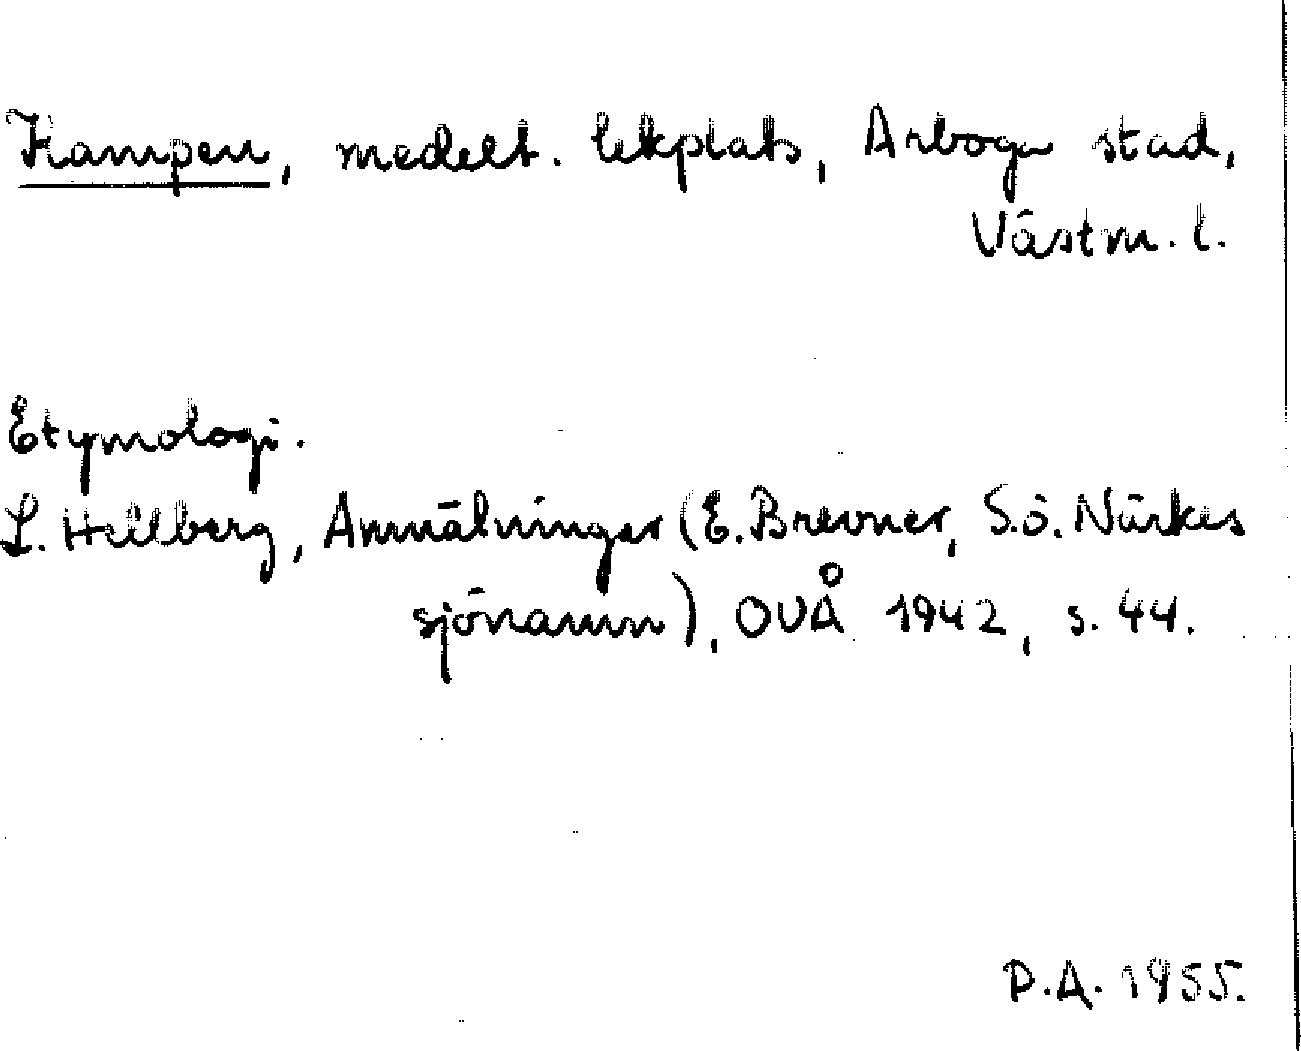 Kampen, medelt. lekplats, Arboga stad,
Västm. l.
Etymologi.
L. Hellberg, Anmälningar (E. Brevner, S.ö. Närkes
sjönamn), OUÅ 1942, s. 44.
P.A. 1955.